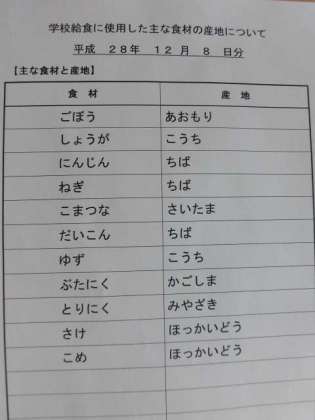 学校給食に使用した主な食材の産地について
平成 28年 12月 8日分
【主な食材と産地】
食材 産地
ごぼう あおもり
しょうが こうち
にんじん ちば
ねぎ ちば
こまつな さいたま
だいこん ちば
ゆず こうち
ぶたにく かごしま
とりにく みやざき
さけ ほっかいどう
こめ ほっかいどう